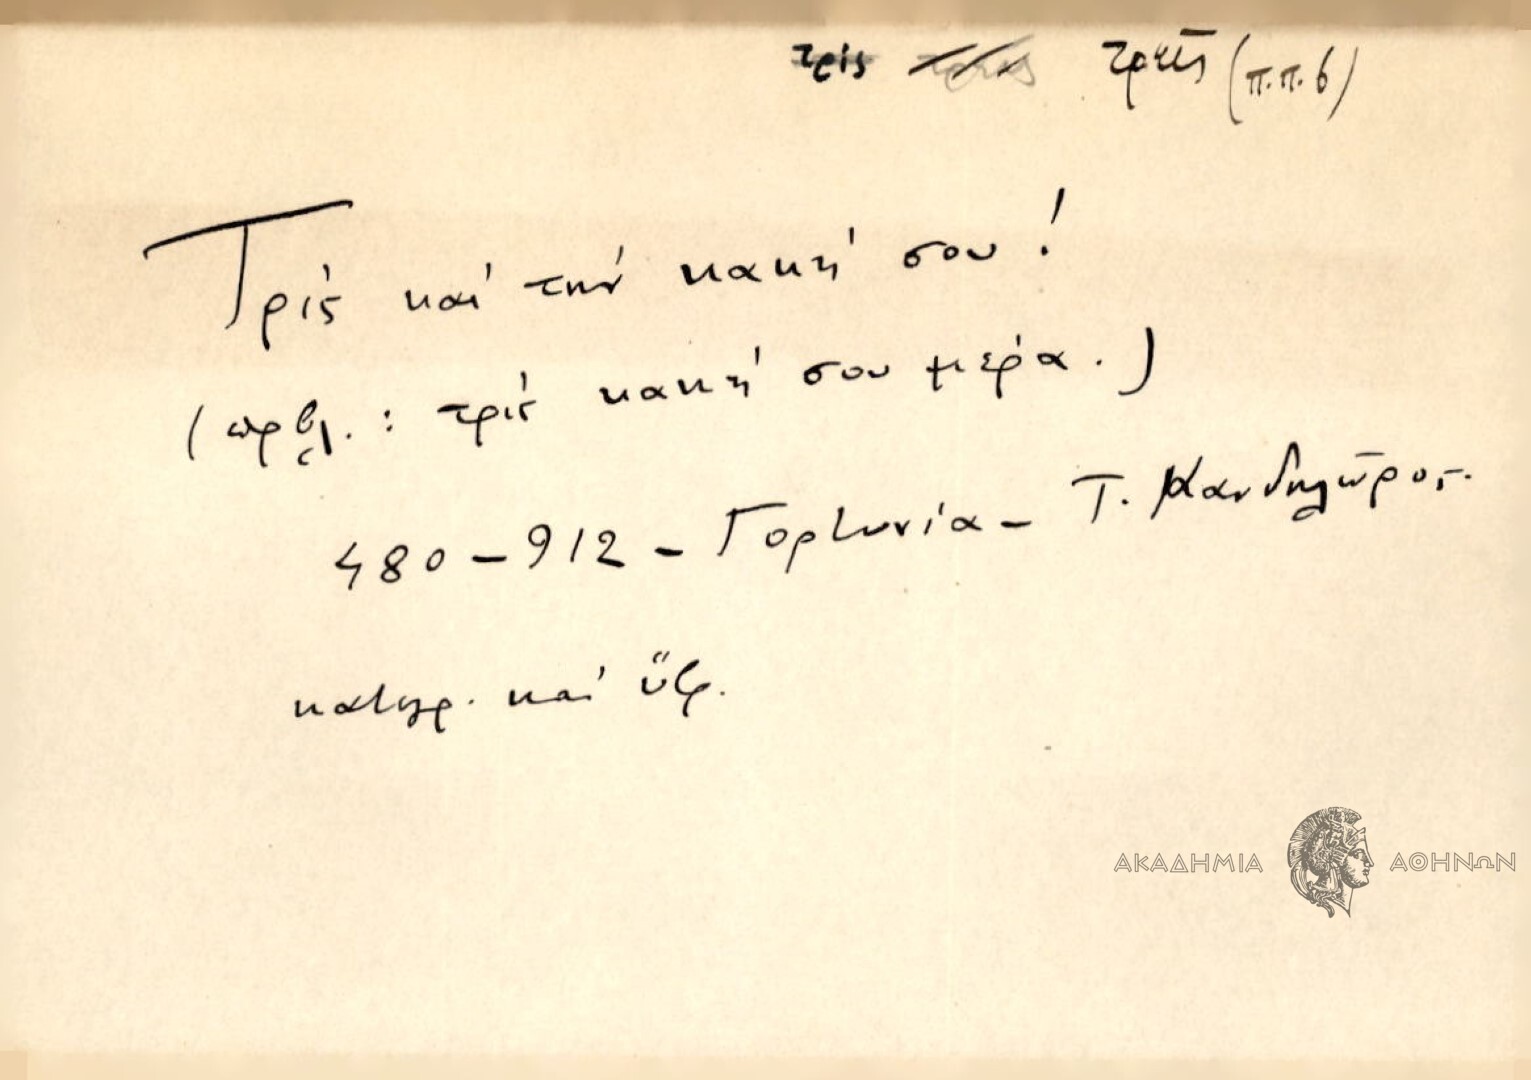 τρίς τρεῖς (π.π. β)
Τρίς καί τήν κακή σου!
(πρβλ. : τρίς κακή σου μέρα.)
480-912 - Γορτυνία - Τ. Κανδηλῶρος.
κατηγρ. καί ὕβρ.
ΑΚΑΔΗΜΙΑ ΑΘΗΝΩΝ